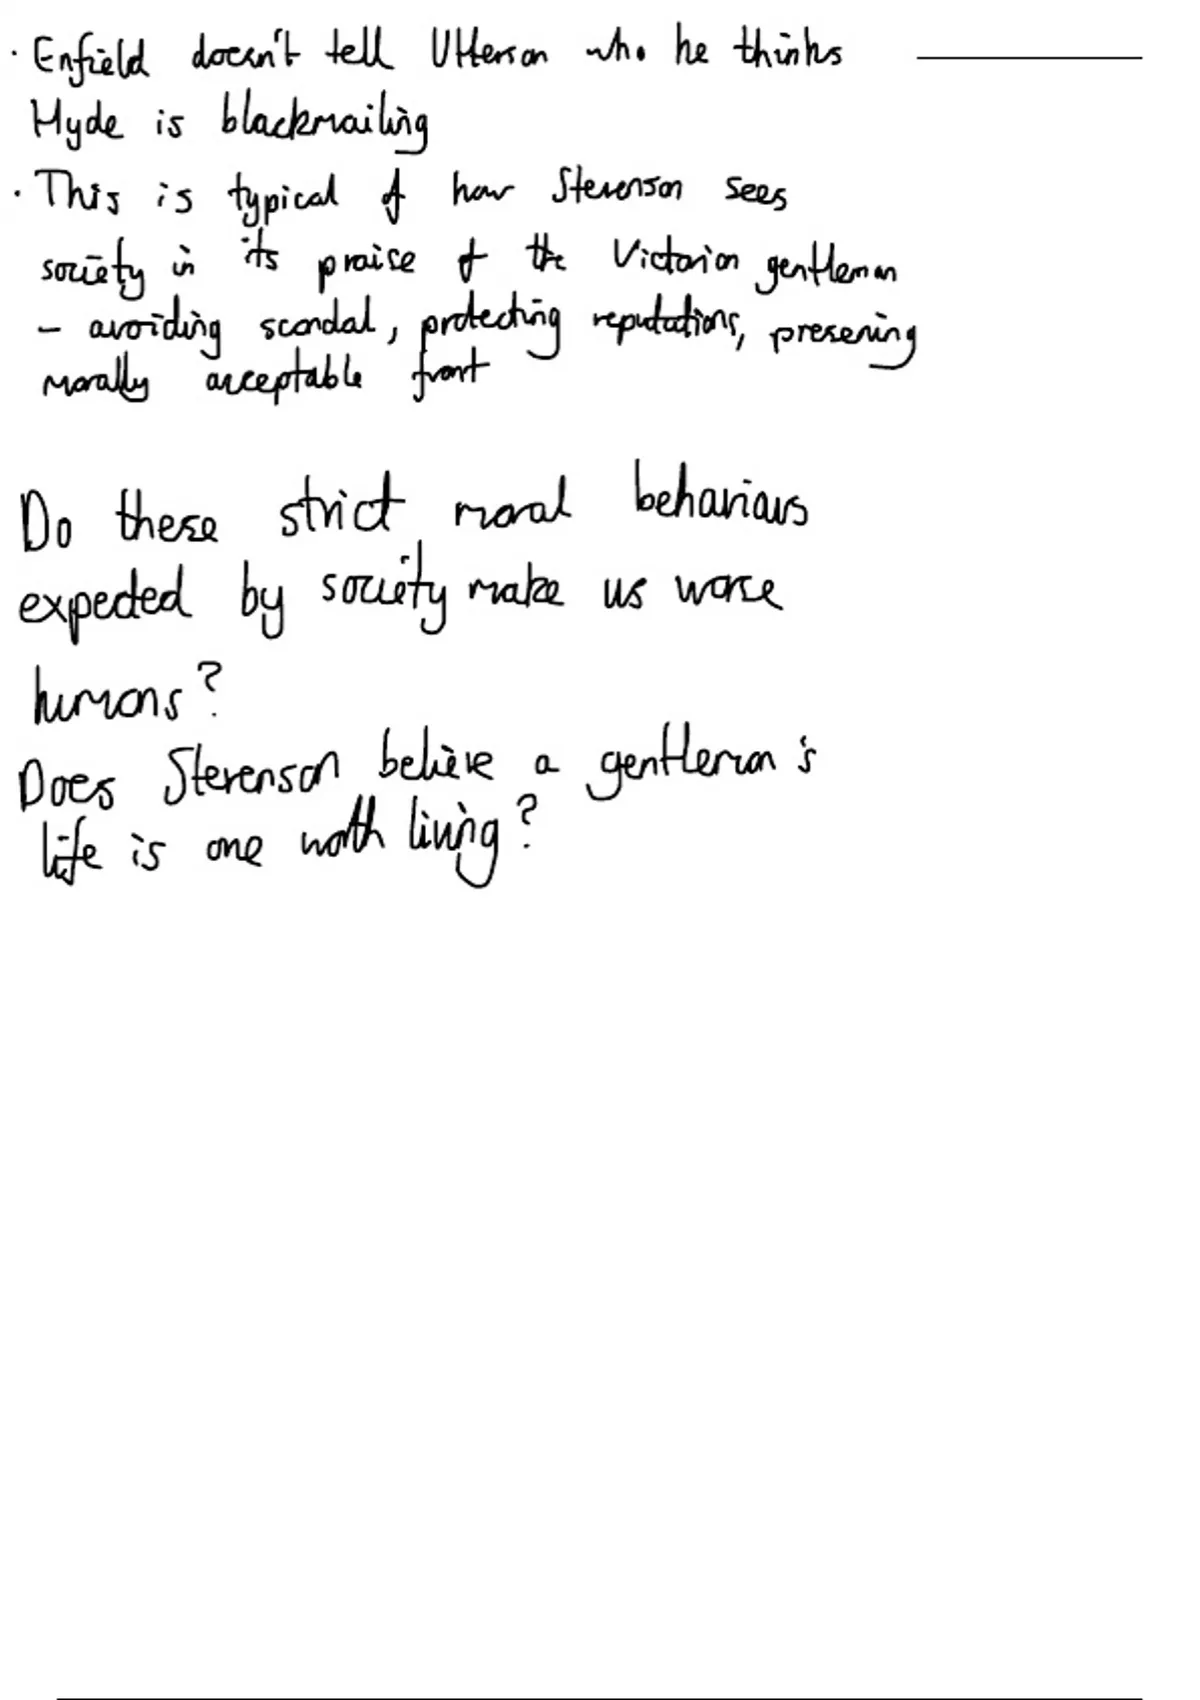 · Enfield doesn't tell Utterson who he thinks
Hyde is blackmailing
· This is typical of how Stevenson sees
society in its praise of the Victorian gentleman
- avoiding scandal, protecting reputations, preserving
morally acceptable front
Do these strict moral behaviours
expected by society make us worse
humans?
Does Stevenson believe a gentleman's
life is one worth living?